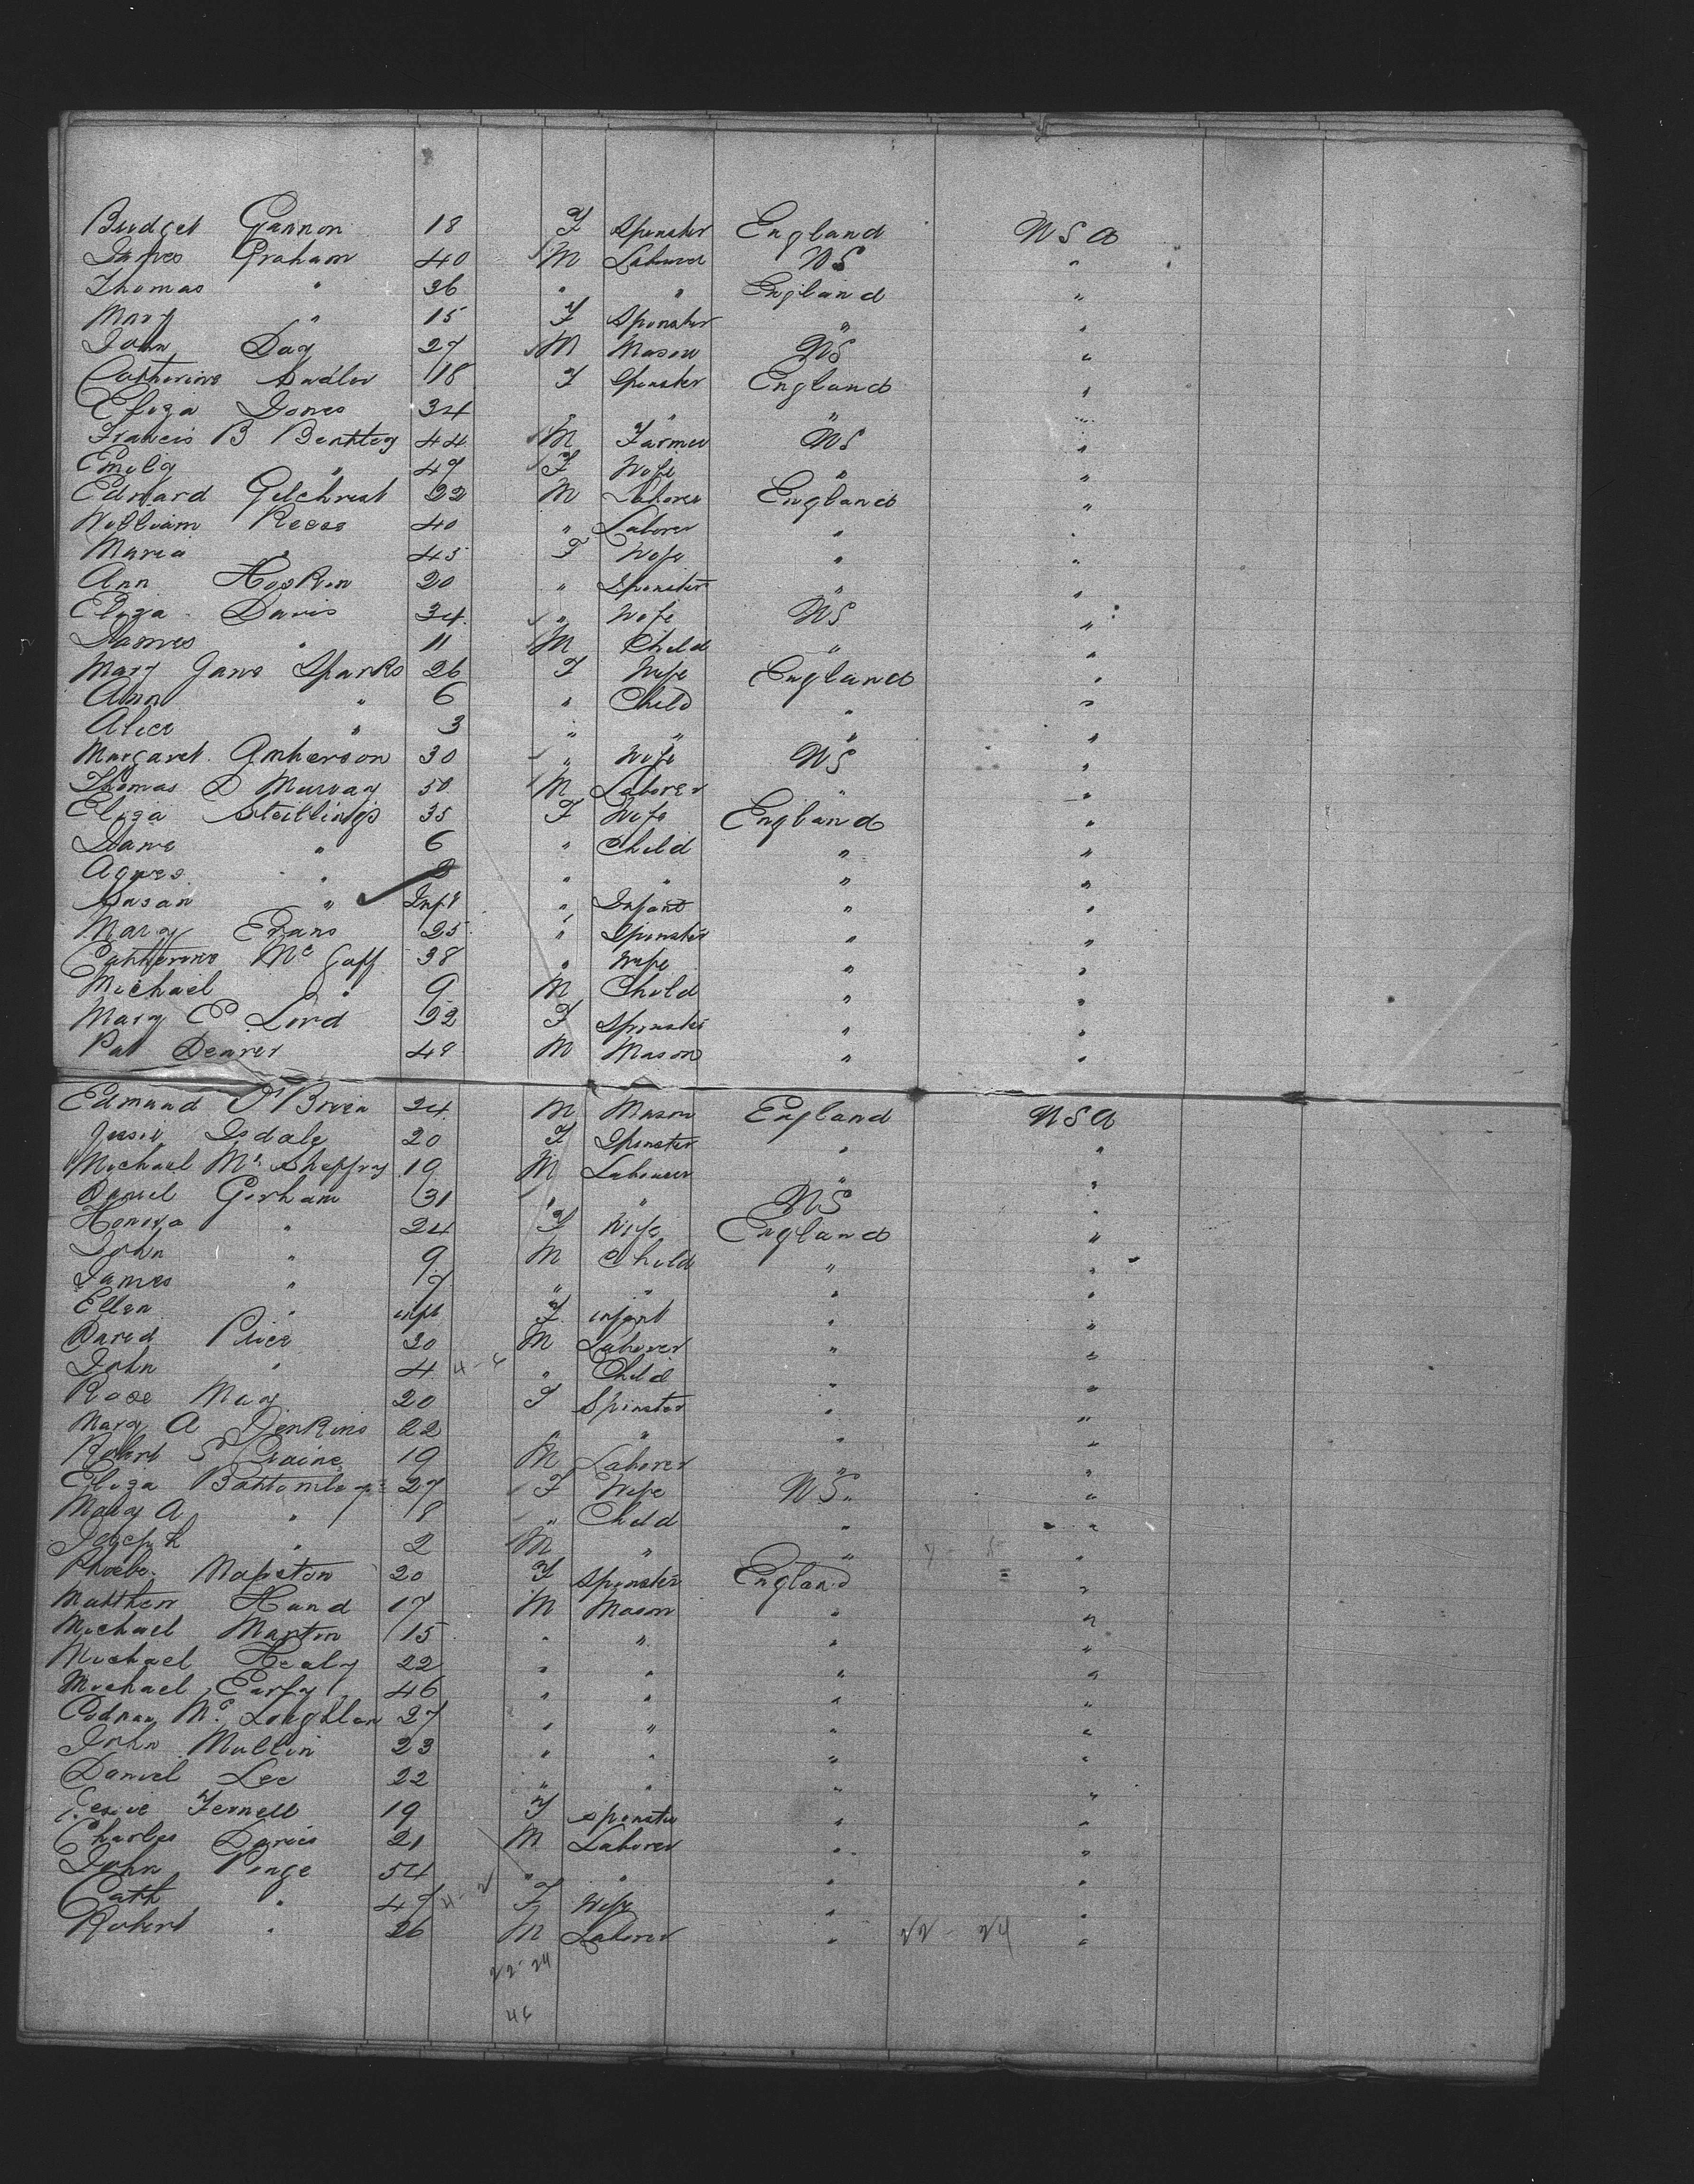 Bridget Gannon 18 F Spinster England U S A
James Graham 40 M Laborer U S "
Thomas " 36 " " England "
Mary " 15 F Spinster " "
John Day 27 M Mason U S "
Catherine Sadler 18 F Spinster England "
Eliza Jones 34 " " " "
Francis B Bentley 44 M Farmer U S "
Emily " 47 F Wife " "
Edward Gilchrist 22 M Laborer England "
William Reese 40 " Laborer " "
Maria " 45 F Wife " "
Ann Hoskin 20 " Spinster " "
Eliza Davis 34 " Wife U S "
James " 11 M Child " "
Mary Jane Sparks 26 F Wife England "
Ann " 6 " Child " "
Alice " 3 " " " "
Margaret 30 " Wife U S "
Thomas D Murray 50 M Laborer " "
Eliza Steillings 35 F Wife England "
Jane " 6 " Child " "
Agnes " " " " "
Susan " Inft " Infant " "
Mary Evans 25 " Spinster " "
Catherine Mc Goff 38 " Wife " "
Michael " 9 M Child " "
Mary E Lord 32 F Spinster " "
Pat 48 M Mason " "
Edmund O'Brien 24 M Mason England U S A
Jessie Isdale 20 F Spinster " "
Michael Mc Sheffry 19 M Laborer " "
Daniel Gorham 31 " " U S "
Honora " 24 F Wife England "
John " 9 M Child " "
James " 7 " " " "
Ellen " inft F infant " "
David Price 30 M Laborer " "
John " 4 4-6 " Child " "
Rose May 20 F Spinster " "
Mary A Jenkins 22 " " " "
Robert S Craine 19 M Laborer " "
Eliza Bottomley 27 F Wife U S "
Mary A " 8 " Child " "
Joseph " 2 M " " "
Phoebe Mapston 20 F Spinster England "
Matthew Hand 17 M Mason " "
Michael Martin 15 " " " "
Michael Healy 22 " " " "
Michael Early 46 " " " "
Mc Loughlan 27 " " " "
John Mullin 23 " " " "
Daniel Lee 22 " " " "
Jessie Fennell 19 F Spinster " "
Charles Davies 21 M Laborer " "
John Pinge 54 " " " "
Cath " 47 4-2 F Wife " "
Robert " 26 M Laborer " 22-24 "
22-24
46